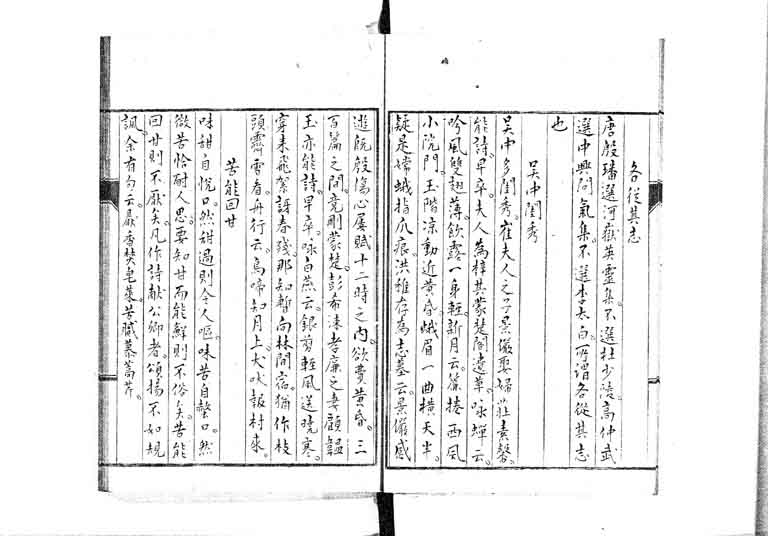 各從其志
唐殷璠選河嶽英靈集。不選杜少陵。高仲武
選中興間氣集。不選李太白。所謂各從其志
也
吳中閨秀
吳中多閨秀。崔夫人之子景儼娶婦莊素馨。
能詩。早卒。夫人為梓其蒙楚閣遺草。咏蟬云。
吟風雙翅薄。飲露一身輕。新月云。簾捲西風
小院門。玉階凉動近黃昏。蛾眉一曲橫天半。
疑是嫦娥指爪痕。洪稚存為志墓云。景儼感
逝既殷。傷心屢賦。十二時之內。欲費黃昏。三
百篇之間。竟刪蒙楚。彭希洓孝廉之妻顧韞
玉亦能詩。早卒。咏白燕云。銀剪輕風送曉寒。
穿來飛絮訝春殘。那知暫向林間宿。猶作枝
頭霽雪看。舟行云。烏啼知月上。犬吠報村來。
苦能回甘
味甜自悅口。然甜過則令人嘔。味苦自螫口。然
微苦恰耐人思。要知甘而能鮮則不俗矣。苦能
回甘則不厭矣。凡作詩獻公卿者。頌揚不如規
諷。余有句云。厭香焚皂莢。苦膩慕蒿芹。